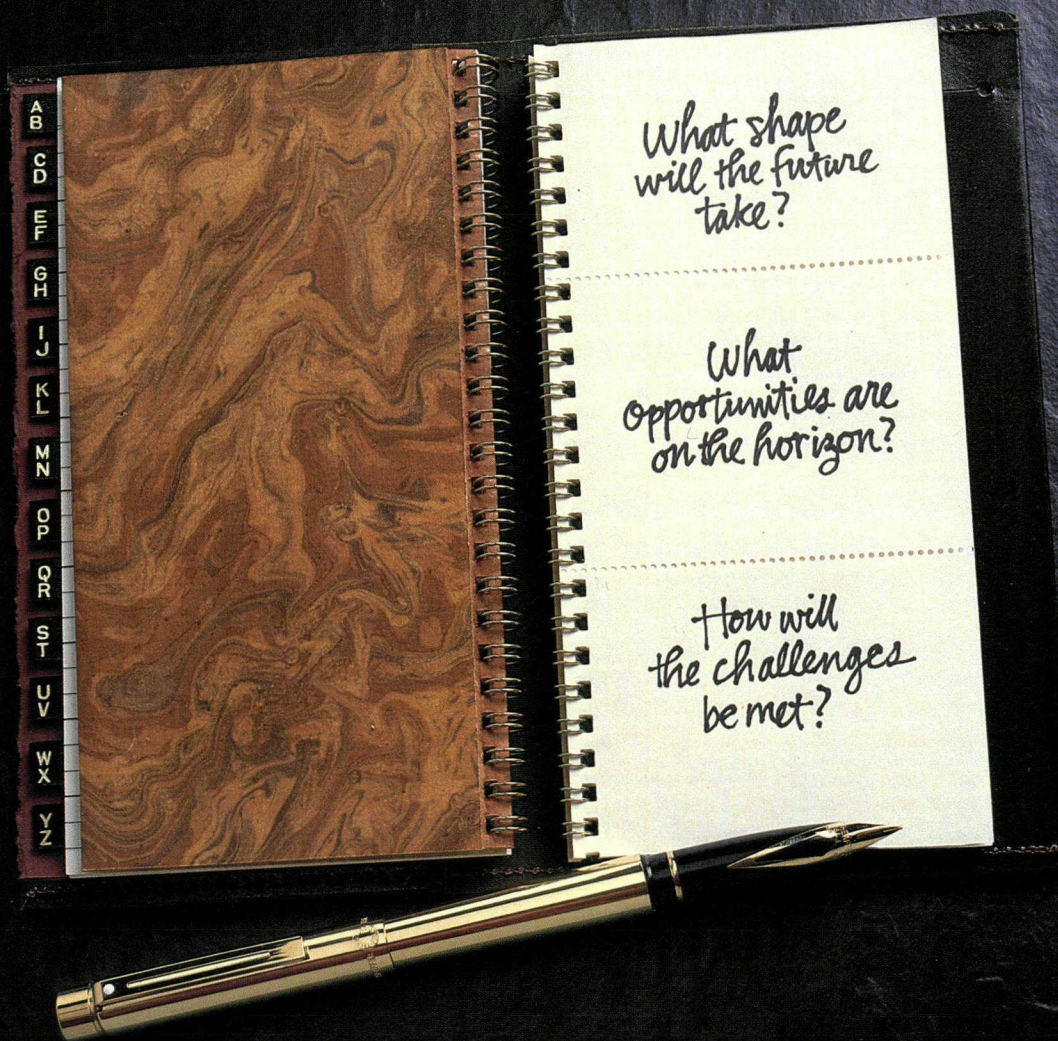 A
B
C
D
E
F
G
H
I
J
K
L
M
N
O
P
Q
R
S
T
U
V
W
X
Y
Z
What shape
will the future
take?
What
opportunities are
on the horizon?
How will
the challenges
be met?